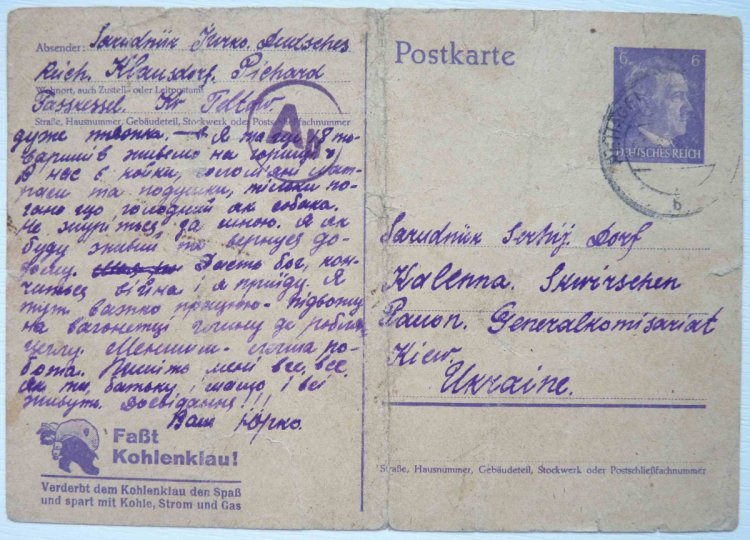 Absender: Sarudnük Jurko. Deutsches
Reich. Klausdorf. Pichard
Wohnort, auch Zustell- oder Leitpostamt
Kr Teltow
Straße, Hausnummer, Gebäudeteil, Stockwerk oder Postschließfachnummer
дуже тяжка. — Я та ще 8 то-
варишів живемо на горищі.
В нас є койки, солом'яні мат-
раси та подушки, тільки по-
гано що голодний як собака.
Не журіться за мною. Я як
буду живий то вернуся до-
дому. Дасть бог, кон-
читься війна і я прийду. Я
тут важко працюю - підвожу
на вагонетці глину де роблять
цеглу. Мені
бота. Пишіть мені все, все
як ти, батьку і мамо і всі
живуть. Досвідання!!!
Ваш Юрко.
Faßt
Kohlenklau!
Verderbt dem Kohlenklau den Spaß
und spart mit Kohle, Strom und Gas
Postkarte
6 6
DEUTSCHES REICH
b
Sarudnük Serhij. Dorf
Kalenna. Skwirschen
Rauon. Generalkomisariat
Kiew.
Ukraine.
Straße, Hausnummer, Gebäudeteil, Stockwerk oder Postschließfachnummer